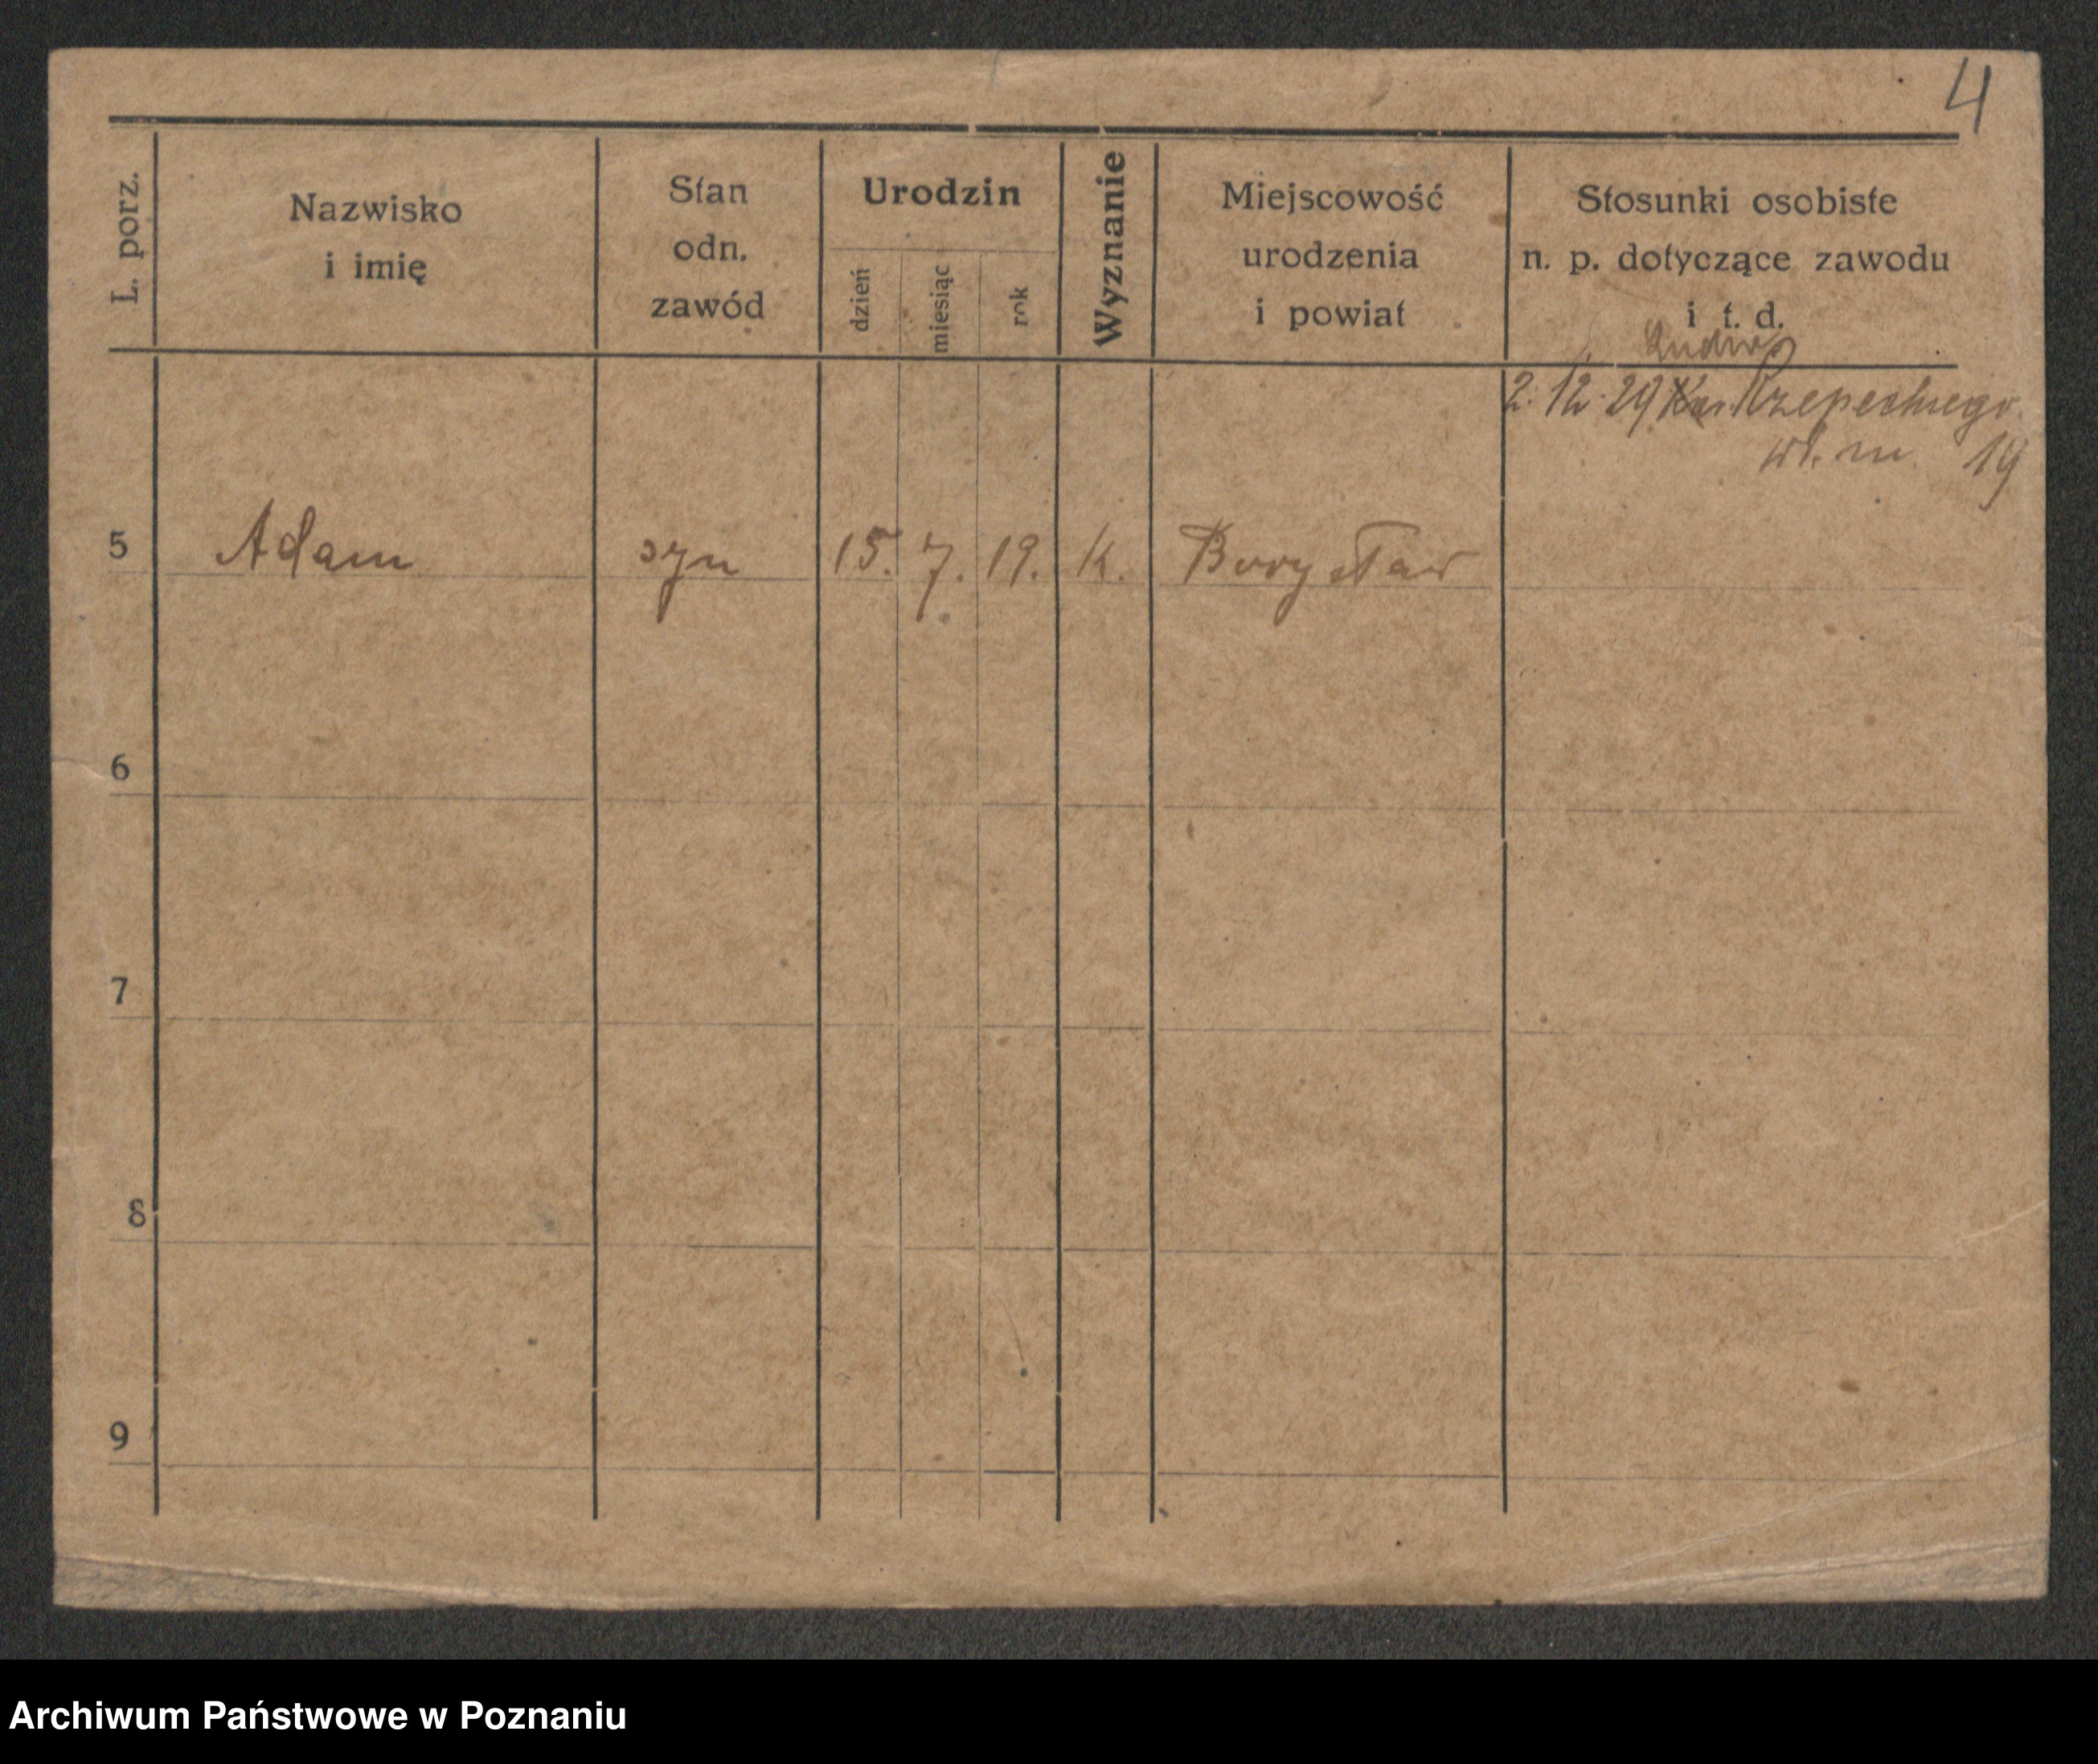 4
L. porz.
Nazwisko
i imię
Stan
odn.
zawód
Urodzin
dzień
miesiąc
rok
Wyznanie
Miejscowość
urodzenia
i powiat
Stosunki osobiste
n. p. dotyczące zawodu
i t. d.
2. 12. 29 Rzepeckiego
wł. m. 19
5 Adam syn 15. 7. 19. k. Borysław
6
7
8
9
Archiwum Państwowe w Poznaniu